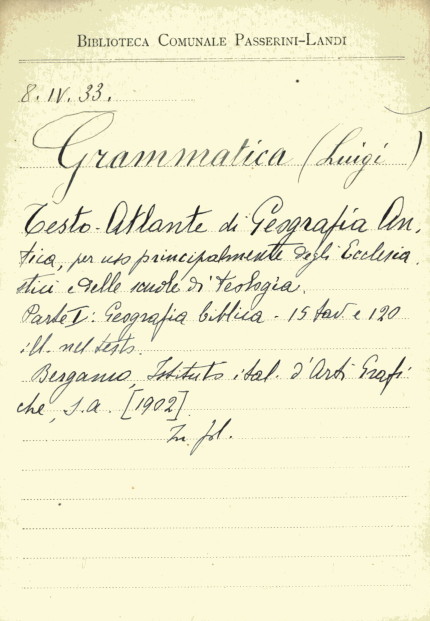 BIBLIOTECA COMUNALE PASSERINI-LANDI
8. IV. 33.
Grammatica (Luigi)
Testo-Atlante di Geografia An-
tica, per uso principalmente degli Ecclesia
stici e delle scuole di teologia.
Parte I: Geografia biblica - 15 tav. e 120
ill. nel testo.
Bergamo, Istituto ital. d'Arti Grafi
che, s.a. [1902]
In fol.